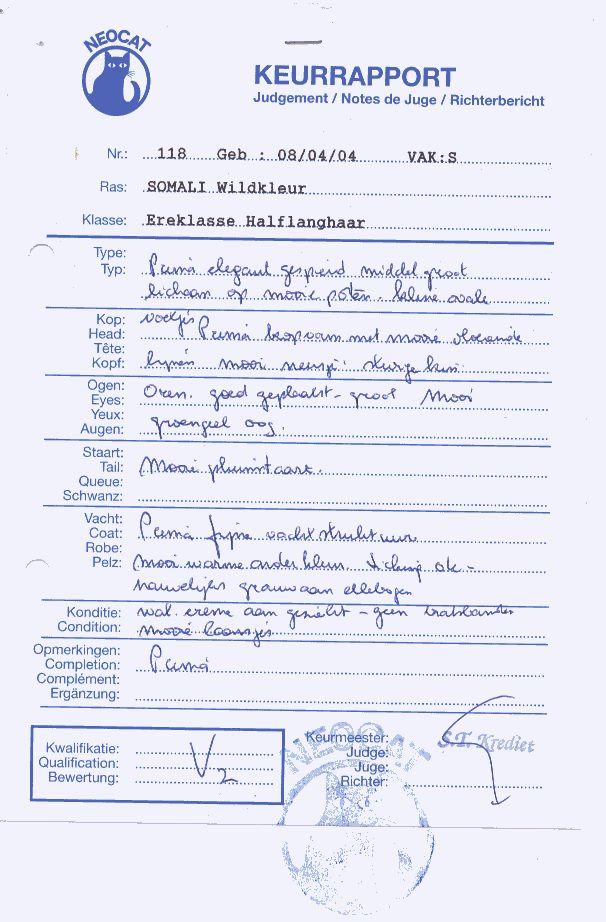 NEOCAT
KEURRAPPORT
Judgement / Notes de Juge / Richterbericht
Nr.: 118 Geb : 08/04/04 VAK:S
Ras: SOMALI Wildkleur
Klasse: Ereklasse Halflanghaar
Type:
Typ: Prima elegant gespierd middel groot
lichaam op mooie poten kleine ovale
Kop: voetjes
Head: Prima kopvorm met mooie vloeiende
Tête:
Kopf: lijnen mooi neusje. sturge kin.
Ogen: Oren. goed geplaatst - groot Mooi
Eyes:
Yeux: groengeel oog.
Augen:
Staart:
Tail: Mooie pluimstaart.
Queue:
Schwanz:
Vacht: Prima fijne vachtstruktuur
Coat:
Robe:
Pelz: mooi warme onderkleur. Ticking ok -
nauwelijks grauw aan ellebogen
Konditie: wat creme aan gezicht - geen
Condition: mooie
Opmerkingen: Prima
Completion:
Complément:
Ergänzung:
Kwalifikatie:
Qualification: V2
Bewertung:
Keurmeester: S.T. Krediet
Judge:
Juge:
Richter:
NEOCAT